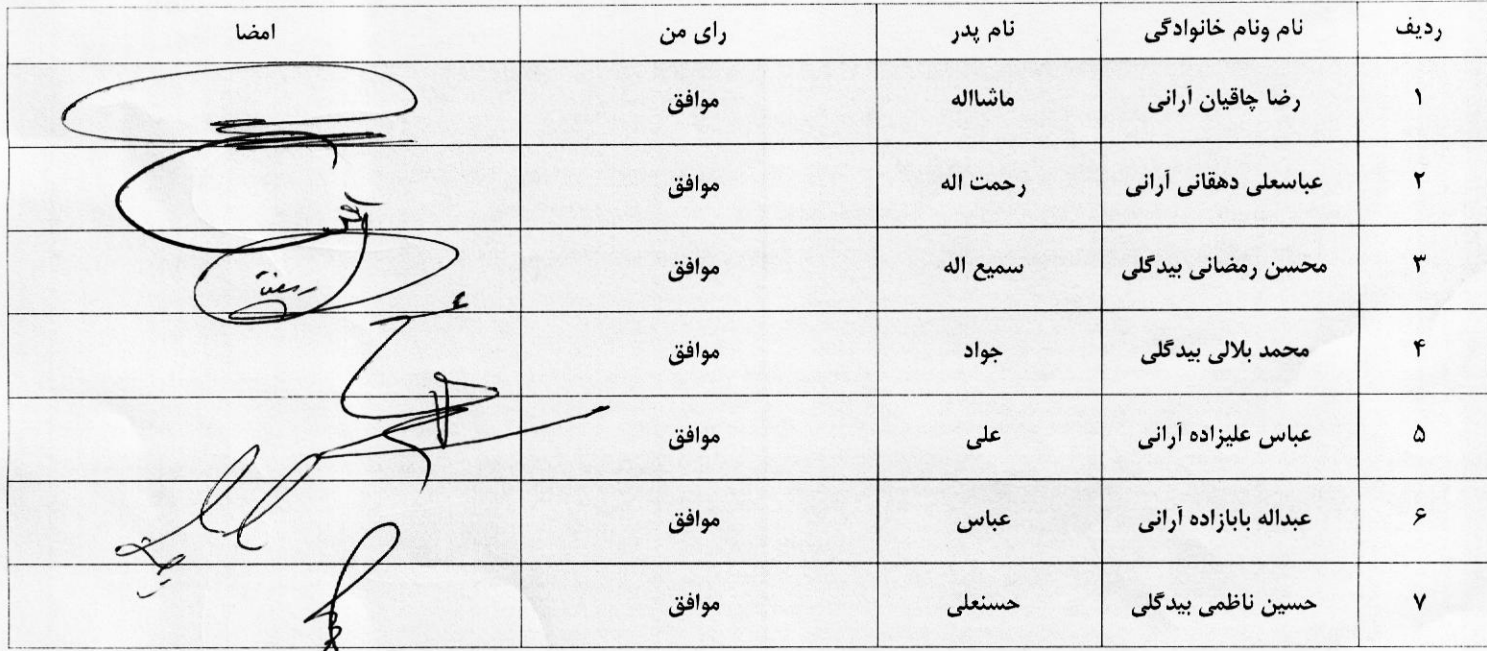 ردیف نام ونام خانوادگی نام پدر رای من امضا
۱ رضا چاقیان آرانی ماشااله موافق
۲ عباسعلی دهقانی آرانی رحمت اله موافق
۳ محسن رمضانی بیدگلی سمیع اله موافق
۴ محمد بلالی بیدگلی جواد موافق
۵ عباس علیزاده آرانی علی موافق
۶ عبداله بابازاده آرانی عباس موافق
۷ حسین ناظمی بیدگلی حسنعلی موافق